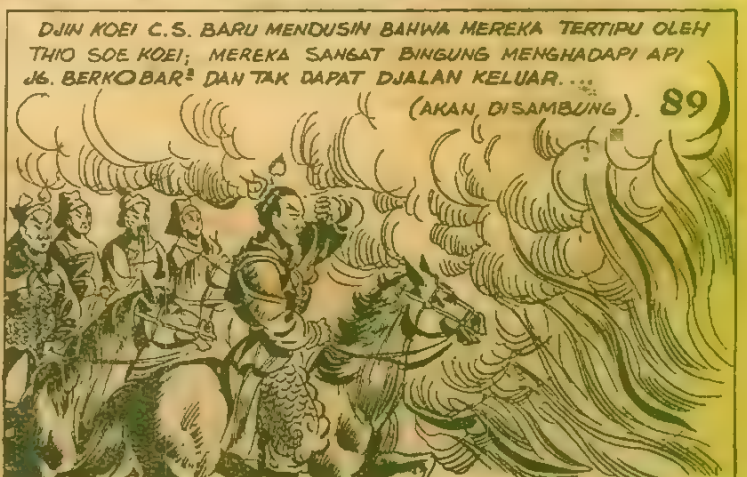 DJIN KOEI C.S. BARU MENDUSIN BAHWA MEREKA TERTIPU OLEH
THIO SOE KOEI; MEREKA SANGAT BINGUNG MENGHADAPI API
JG. BERKOBAR² DAN TAK DAPAT DJALAN KELUAR....
(AKAN DISAMBUNG). 89